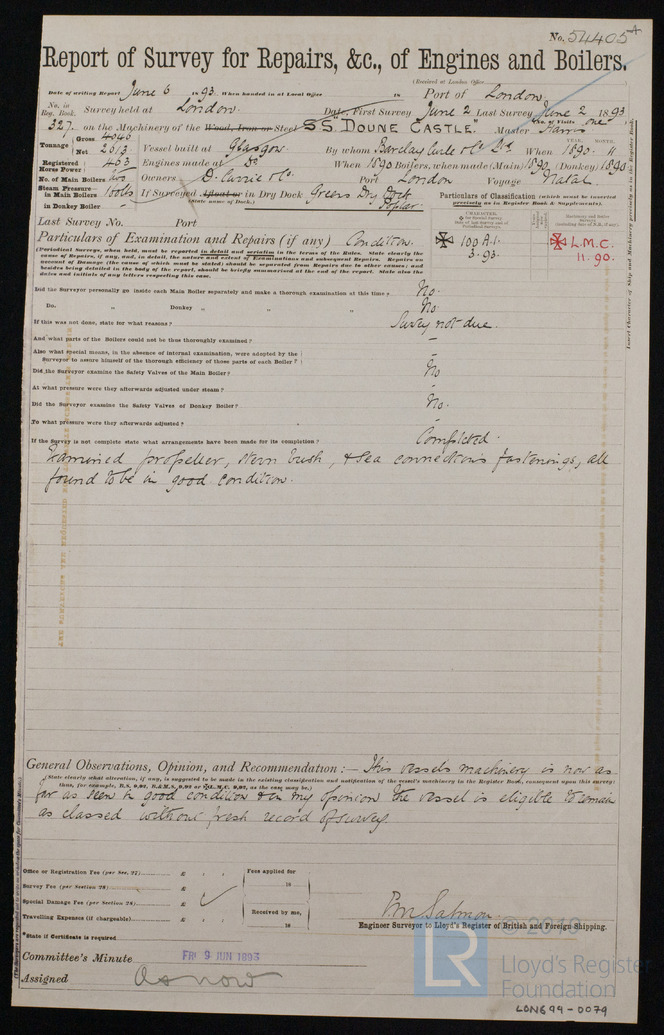 No. 54405
Report of Survey for Repairs, &c., of Engines and Boilers.
(Received at London Office
Date of writing Report June 6 1893. When handed in at Local Office 18 Port of London
No. in Reg. Book. Survey held at London. Date, First Survey June 2 Last Survey June 2 1893
No. of Visits one
327. on the Machinery of the Wood, Iron or Steel S.S. "DOUNE CASTLE." Master Harris
Tonnage Gross 4046 Net 2613 Vessel built at Glasgow. By whom Barclay Curle & Co Ld. When 1890. 11
YEAR. MONTH.
Registered Horse Power 463 Engines made at Do When 1890 Boilers, when made (Main) 1890 (Donkey) 1890
No. of Main Boilers two Owners D. Currie & Co. Port London Voyage Natal
Steam Pressure in Main Boilers 160lbs If Surveyed Afloat or in Dry Dock Greens Dry Dock Poplar.
in Donkey Boiler (State name of Dock.)
Particulars of Classification (which must be inserted precisely as in Register Book & Supplements).
Last Survey No. Port
Particulars of Examination and Repairs (if any) Condition.
100 A.1.
3.93.
L.M.C.
11.90.
Did the Surveyor personally go inside each Main Boiler separately and make a thorough examination at this time? No.
Do. " Donkey " " " No.
If this was not done, state for what reasons? Survey not due.
And what parts of the Boilers could not be thus thoroughly examined? –
Also what special means, in the absence of internal examination, were adopted by the Surveyor to assure himself of the thorough efficiency of those parts of each Boiler? –
Did the Surveyor examine the Safety Valves of the Main Boiler? No
At what pressure were they afterwards adjusted under steam? -
Did the Surveyor examine the Safety Valves of Donkey Boiler? No.
To what pressure were they afterwards adjusted? -
If the Survey is not complete state what arrangements have been made for its completion? Completed.
Examined propeller, stern bush, & sea connections fastenings, all
found to be in good condition.
General Observations, Opinion, and Recommendation:— This vessels machinery is now as
(State clearly what alteration, if any, is suggested to be made in the existing classification and notification of the vessel's machinery in the Register Book, consequent upon this survey:
far as seen in good condition & in my opinion the vessel is eligible to remain
as classed without fresh record of survey
Office or Registration Fee (per Sec. 27) £ : : Fees applied for
Survey Fee (per Section 28) £ 18
Special Damage Fee (per Section 28) £
Travelling Expenses (if chargeable) £ : : Received by me,
18
Salmon.
Engineer Surveyor to Lloyd's Register of British and Foreign Shipping.
*State if Certificate is required
Committee's Minute FRI 9 JUN 1893
Assigned As now
© 2019
LR
Lloyd's Register
Foundation
LON699-0079